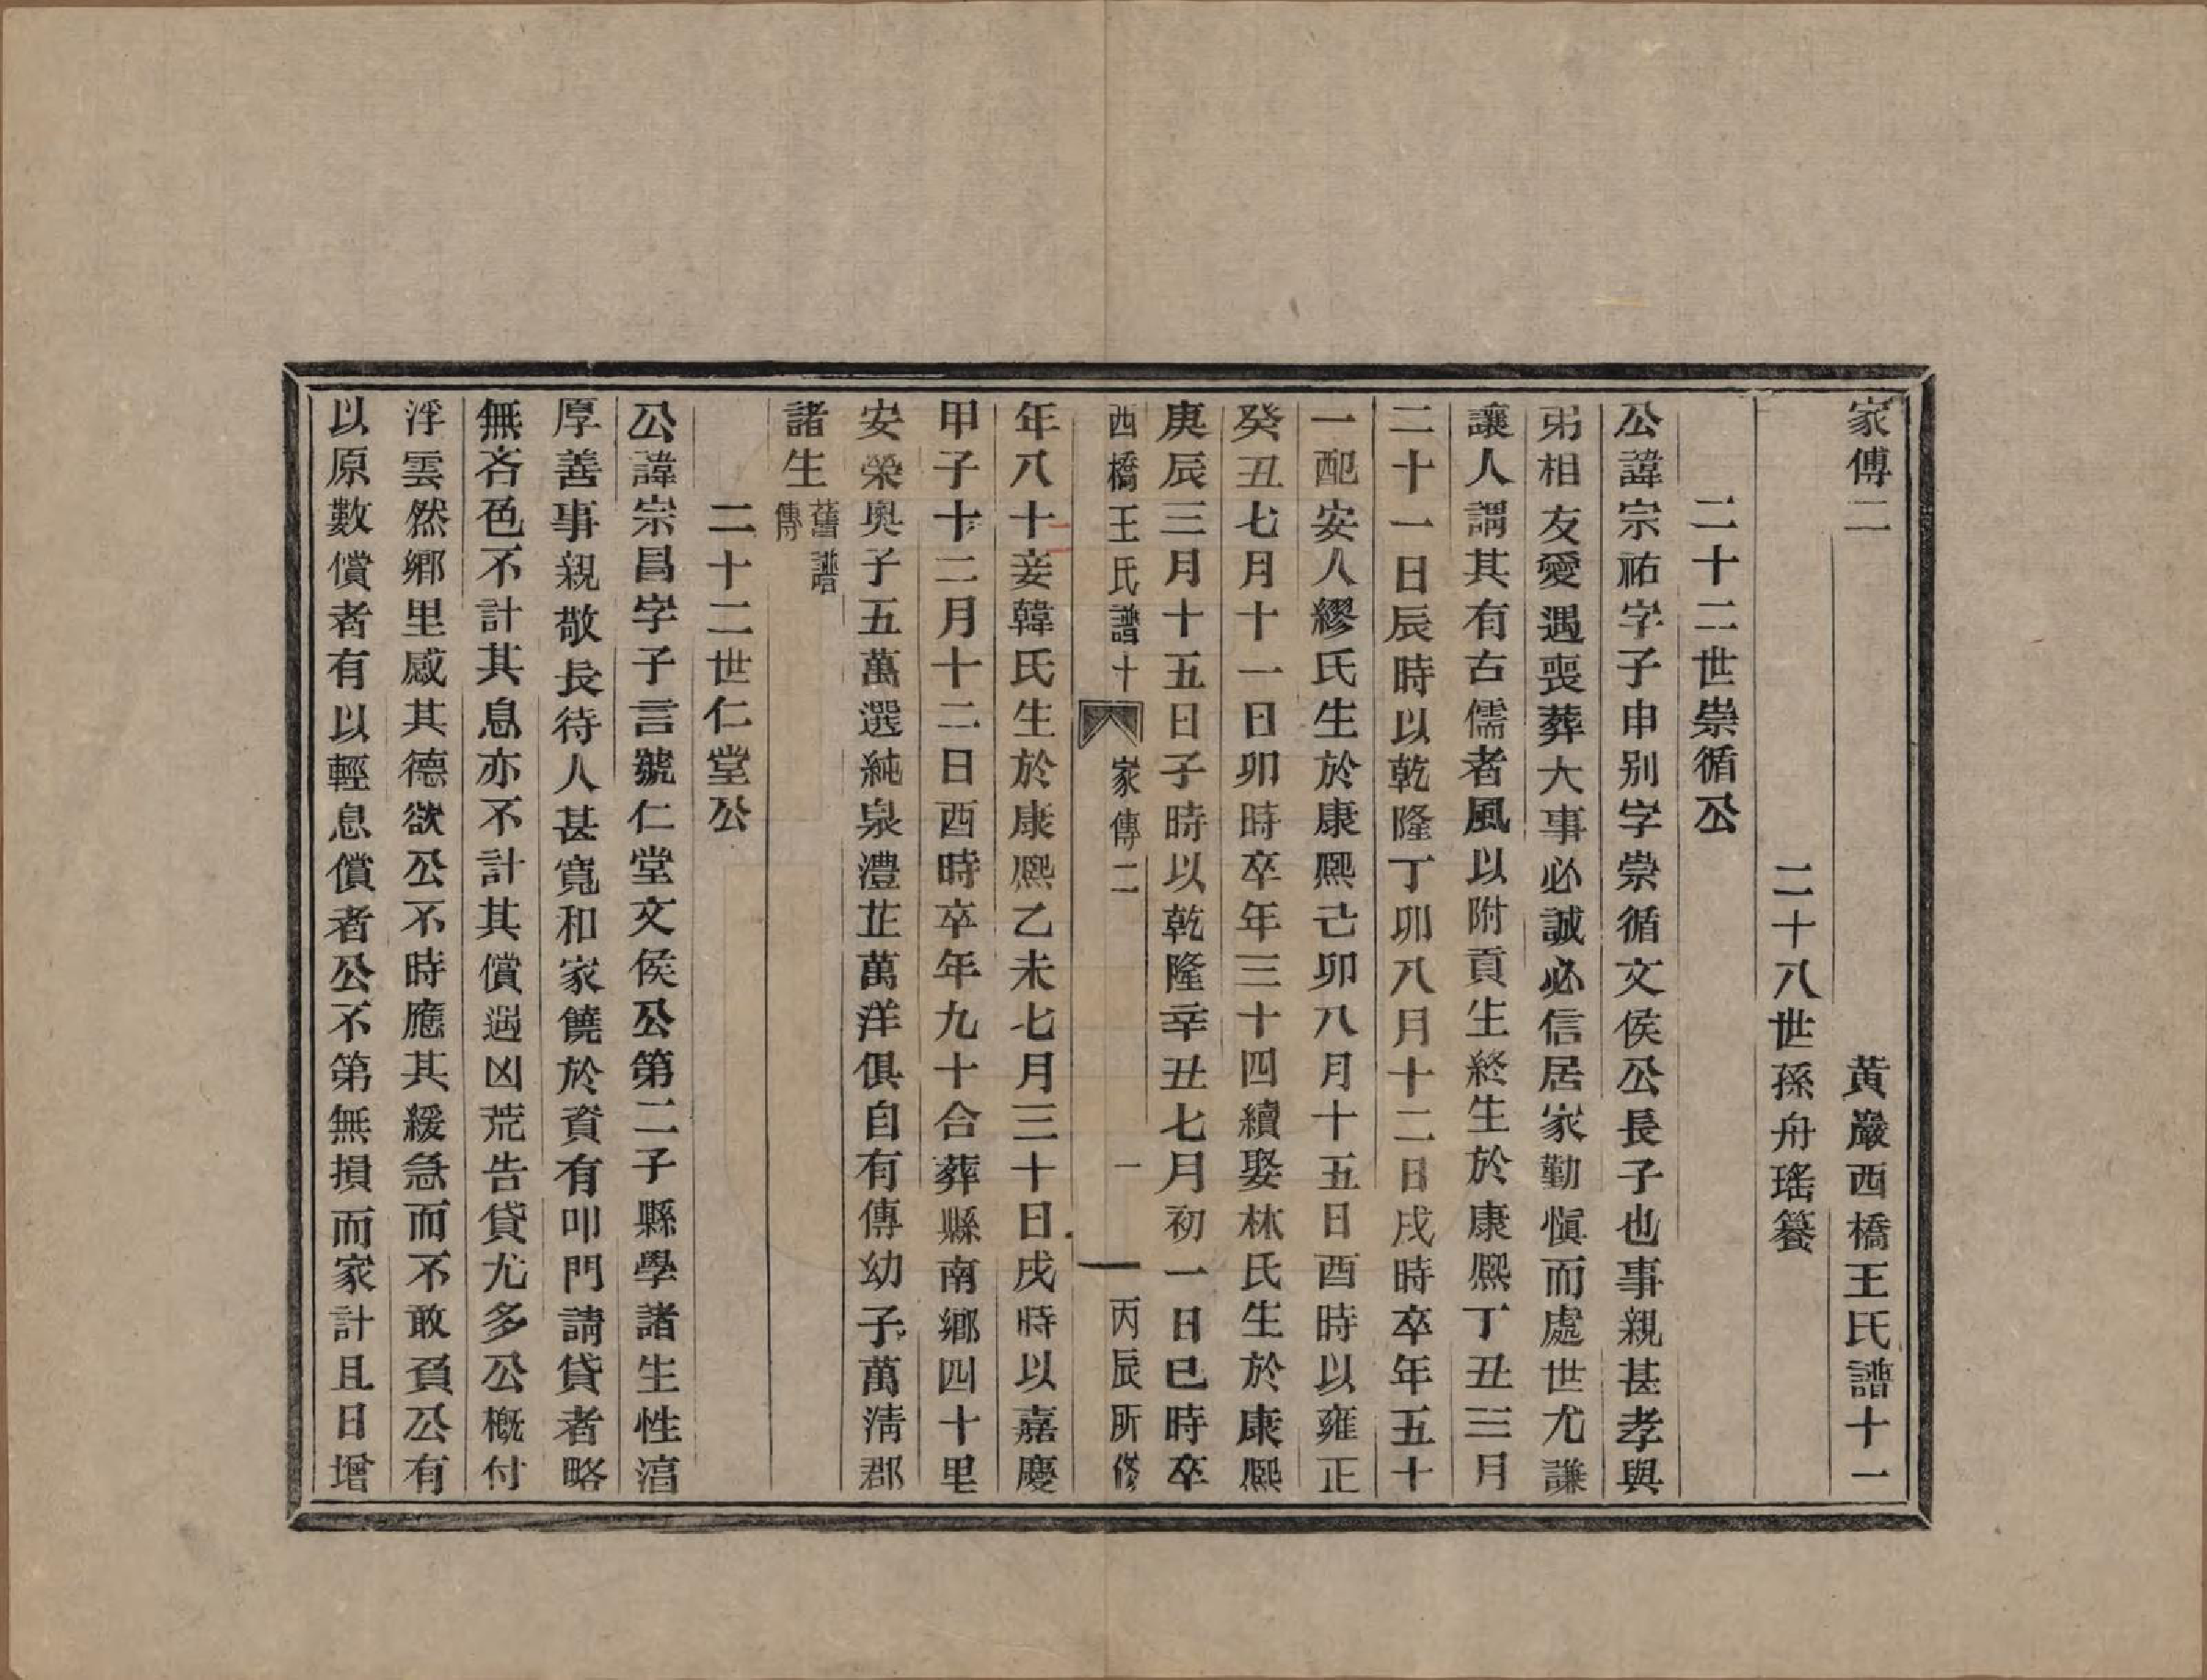 家傳二　黃巖西橋王氏譜十一
二十八世孫舟瑤篹
二十二世崇循公
公諱宗祐字子申别字崇循文侯公長子也事親甚孝與
弟相友愛遇喪葬大事必誠必信居家勤愼而處世尤謙
讓人謂其有古儒者風以附貢生終生於康熙丁丑三月
二十一日辰時以乾隆丁卯八月十二日戌時卒年五十
一配安人繆氏生於康熙己卯八月十五日酉時以雍正
癸丑七月十一日卯時卒年三十四續娶林氏生於康熙
庚辰三月十五日子時以乾隆辛丑七月初一日巳時卒
西橋王氏譜十　家傳二　一　丙辰所修
年八十二妾韓氏生於康熙乙未七月三十日戌時以嘉慶
甲子十二月十二日酉時卒年九十合葬縣南鄉四十里
安榮奧子五萬選純泉澧芷萬洋俱自有傳幼子萬淸郡
諸生舊譜傳
二十二世仁堂公
公諱宗昌字子言號仁堂文侯公第二子縣學諸生性湻
厚善事親敬長待人甚寬和家饒於資有叩門請貸者略
無吝色不計其息亦不計其償遇凶荒告貸尤多公槪付
浮雲然鄉里感其德欲公不時應其緩急而不敢負公有
以原數償者有以輕息償者公不第無損而家計且日增